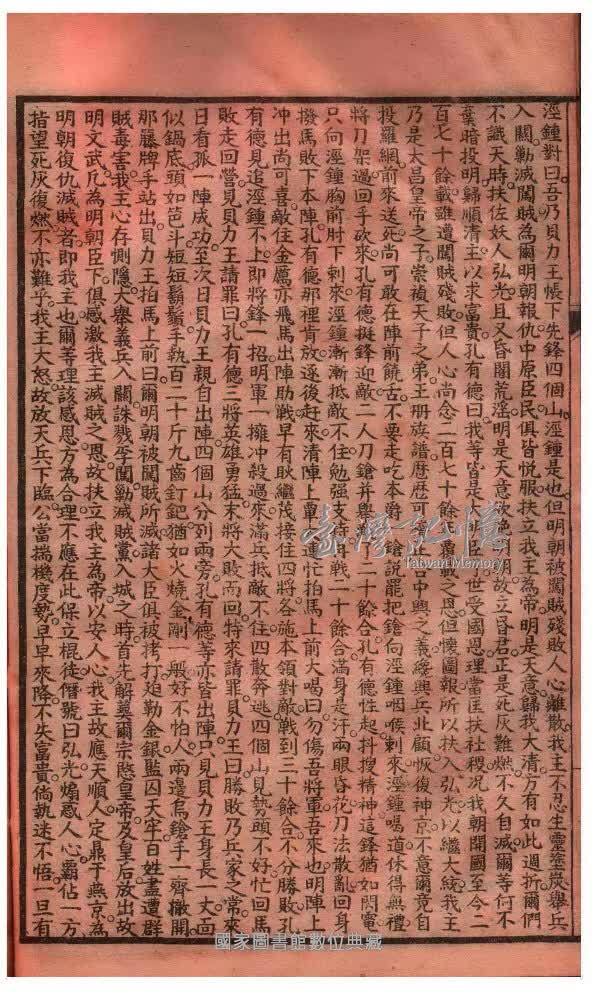 涇鍾對曰吾乃貝力王帳下先鋒四個山涇鍾是也但明朝被闖賊殘敗人心離散我主不忍生靈塗炭舉兵
入關勦滅闖賊為爾明朝報仇中原臣民俱皆悅服扶立我主為帝明是天意歸我大清方有如此週折爾們
不識天時扶佐妖人弘光且又昏闇荒淫明是天意欲絕明朝故立昏君正是死灰難燃不久自滅爾等何不
棄暗投明歸順清主以求富貴孔有德曰我等皆是大明臣子世受國恩理當匡扶社稷况我朝開國至今二
百七十餘載雖遭闖賊殘敗但人心尚念二百七十餘年覆載之恩但懷圖報所以扶入弘光以繼大統我主
乃是太昌皇帝之子崇禎天子之弟玉册族譜曆曆可憑正合中興之義纔興兵北顧恢復神京不意爾竟自
投羅網前來送死尚可敢在陣前饒舌不要走吃本爵一鎗說罷把鎗向涇鍾咽喉刺來涇鍾喝道休得無禮
將刀架過回手砍來孔有德挺鋒迎敵二人刀鎗并舉戰二十餘合孔有德性起抖擻精神這鋒猶如閃電
只向涇鍾胸前肘下刺來涇鍾漸漸抵敵不住勉強支持再戰二十餘合滿身是汗兩眼昏花刀法散亂回身
撥馬敗下本陣孔有德那裡肯放逐後赶來清陣上董達忙拍馬上前大喝曰勿傷吾將軍吾來也明陣上
冲出尚可喜敵住金厲亦飛馬出陣助戰早有耿繼茂接住四將各施本領對敵戰到三十餘合不分勝敗孔
有德見追涇鍾不上即將鋒一招明軍一擁冲殺過來滿兵抵敵不住四散奔逃四個山見勢頭不好忙回馬
敗走回營見貝力王請罪曰孔有德三將英雄勇猛末將大敗而回特來請罪貝力王曰勝敗乃兵家之常來
日看孤一陣成功至次日貝力王親自出陣四個山分列兩旁孔有德等亦皆出陣只見貝力王身長一丈面
似鍋底頭如笆斗短短鬍鬚手執百二十斤九齒釘鈀猶如火燒金剛一般好不怕人兩邊鳥鎗手一齊撤開
那籐牌手站出貝力王拍馬上前曰爾明朝被闖賊所滅諸大臣俱被拷打追勒金銀監囚天牢百姓盡遭群
賊毒害我主心存惻隱大舉義兵入關誅戮孚闖勦滅賊黨入城之時首先解奠爾宗愍皇帝及皇后放出故
明文武凡為明朝臣下俱感激我主滅賊之恩故扶立我主為帝以安人心我主故應天順人定鼎于燕京為
明朝復仇滅賊者即我主也爾等理該感恩方為合理不應在此保立棍徒僭號曰弘光煽惑人心霸佔一方
指望死灰復燃不亦難乎我主大怒故放天兵下臨公當揣機度勢早早來降不失富貴倘執迷不悟一旦有
臺灣記憶
Taiwan Memory
國家圖書館數位典藏